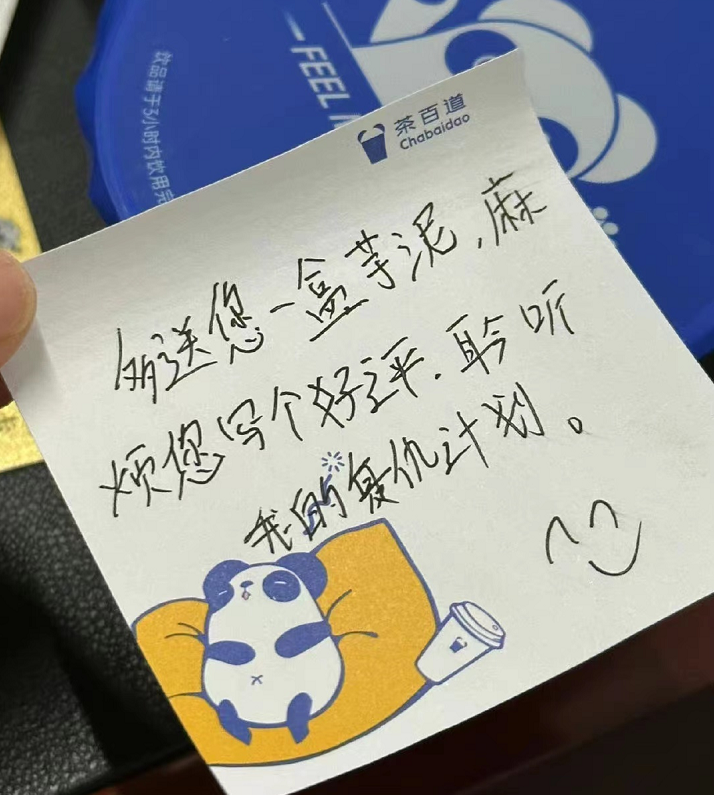 饮品请于3小时内饮用完
FEEL
茶百道
Chabaidao
多送您一盒芋泥,麻
烦您写个好评.聆听
我的复仇计划。